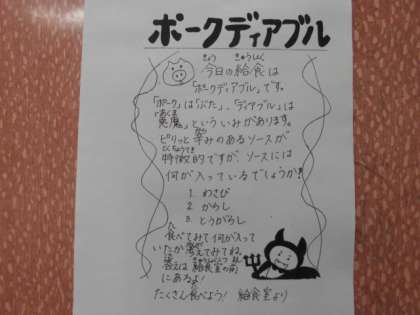 ポークディアブル
きょう きゅうしょく
今日の給食は
「ポークディアブル」です。
「ポーク」は「ぶた」、「ディアブル」は
あくま
「悪魔」といういみがあります。
から
ピリッと辛みのあるソースが
とくちょうてき
特徴的ですが、ソースには
何が入っているでしょうか!
1. わさび
2. からし
3. とうがらし
食べてみて何が入って
いたか考えてみてね。
答えは給食室の前
にあるよ!
たくさん食べよう! 給食室より